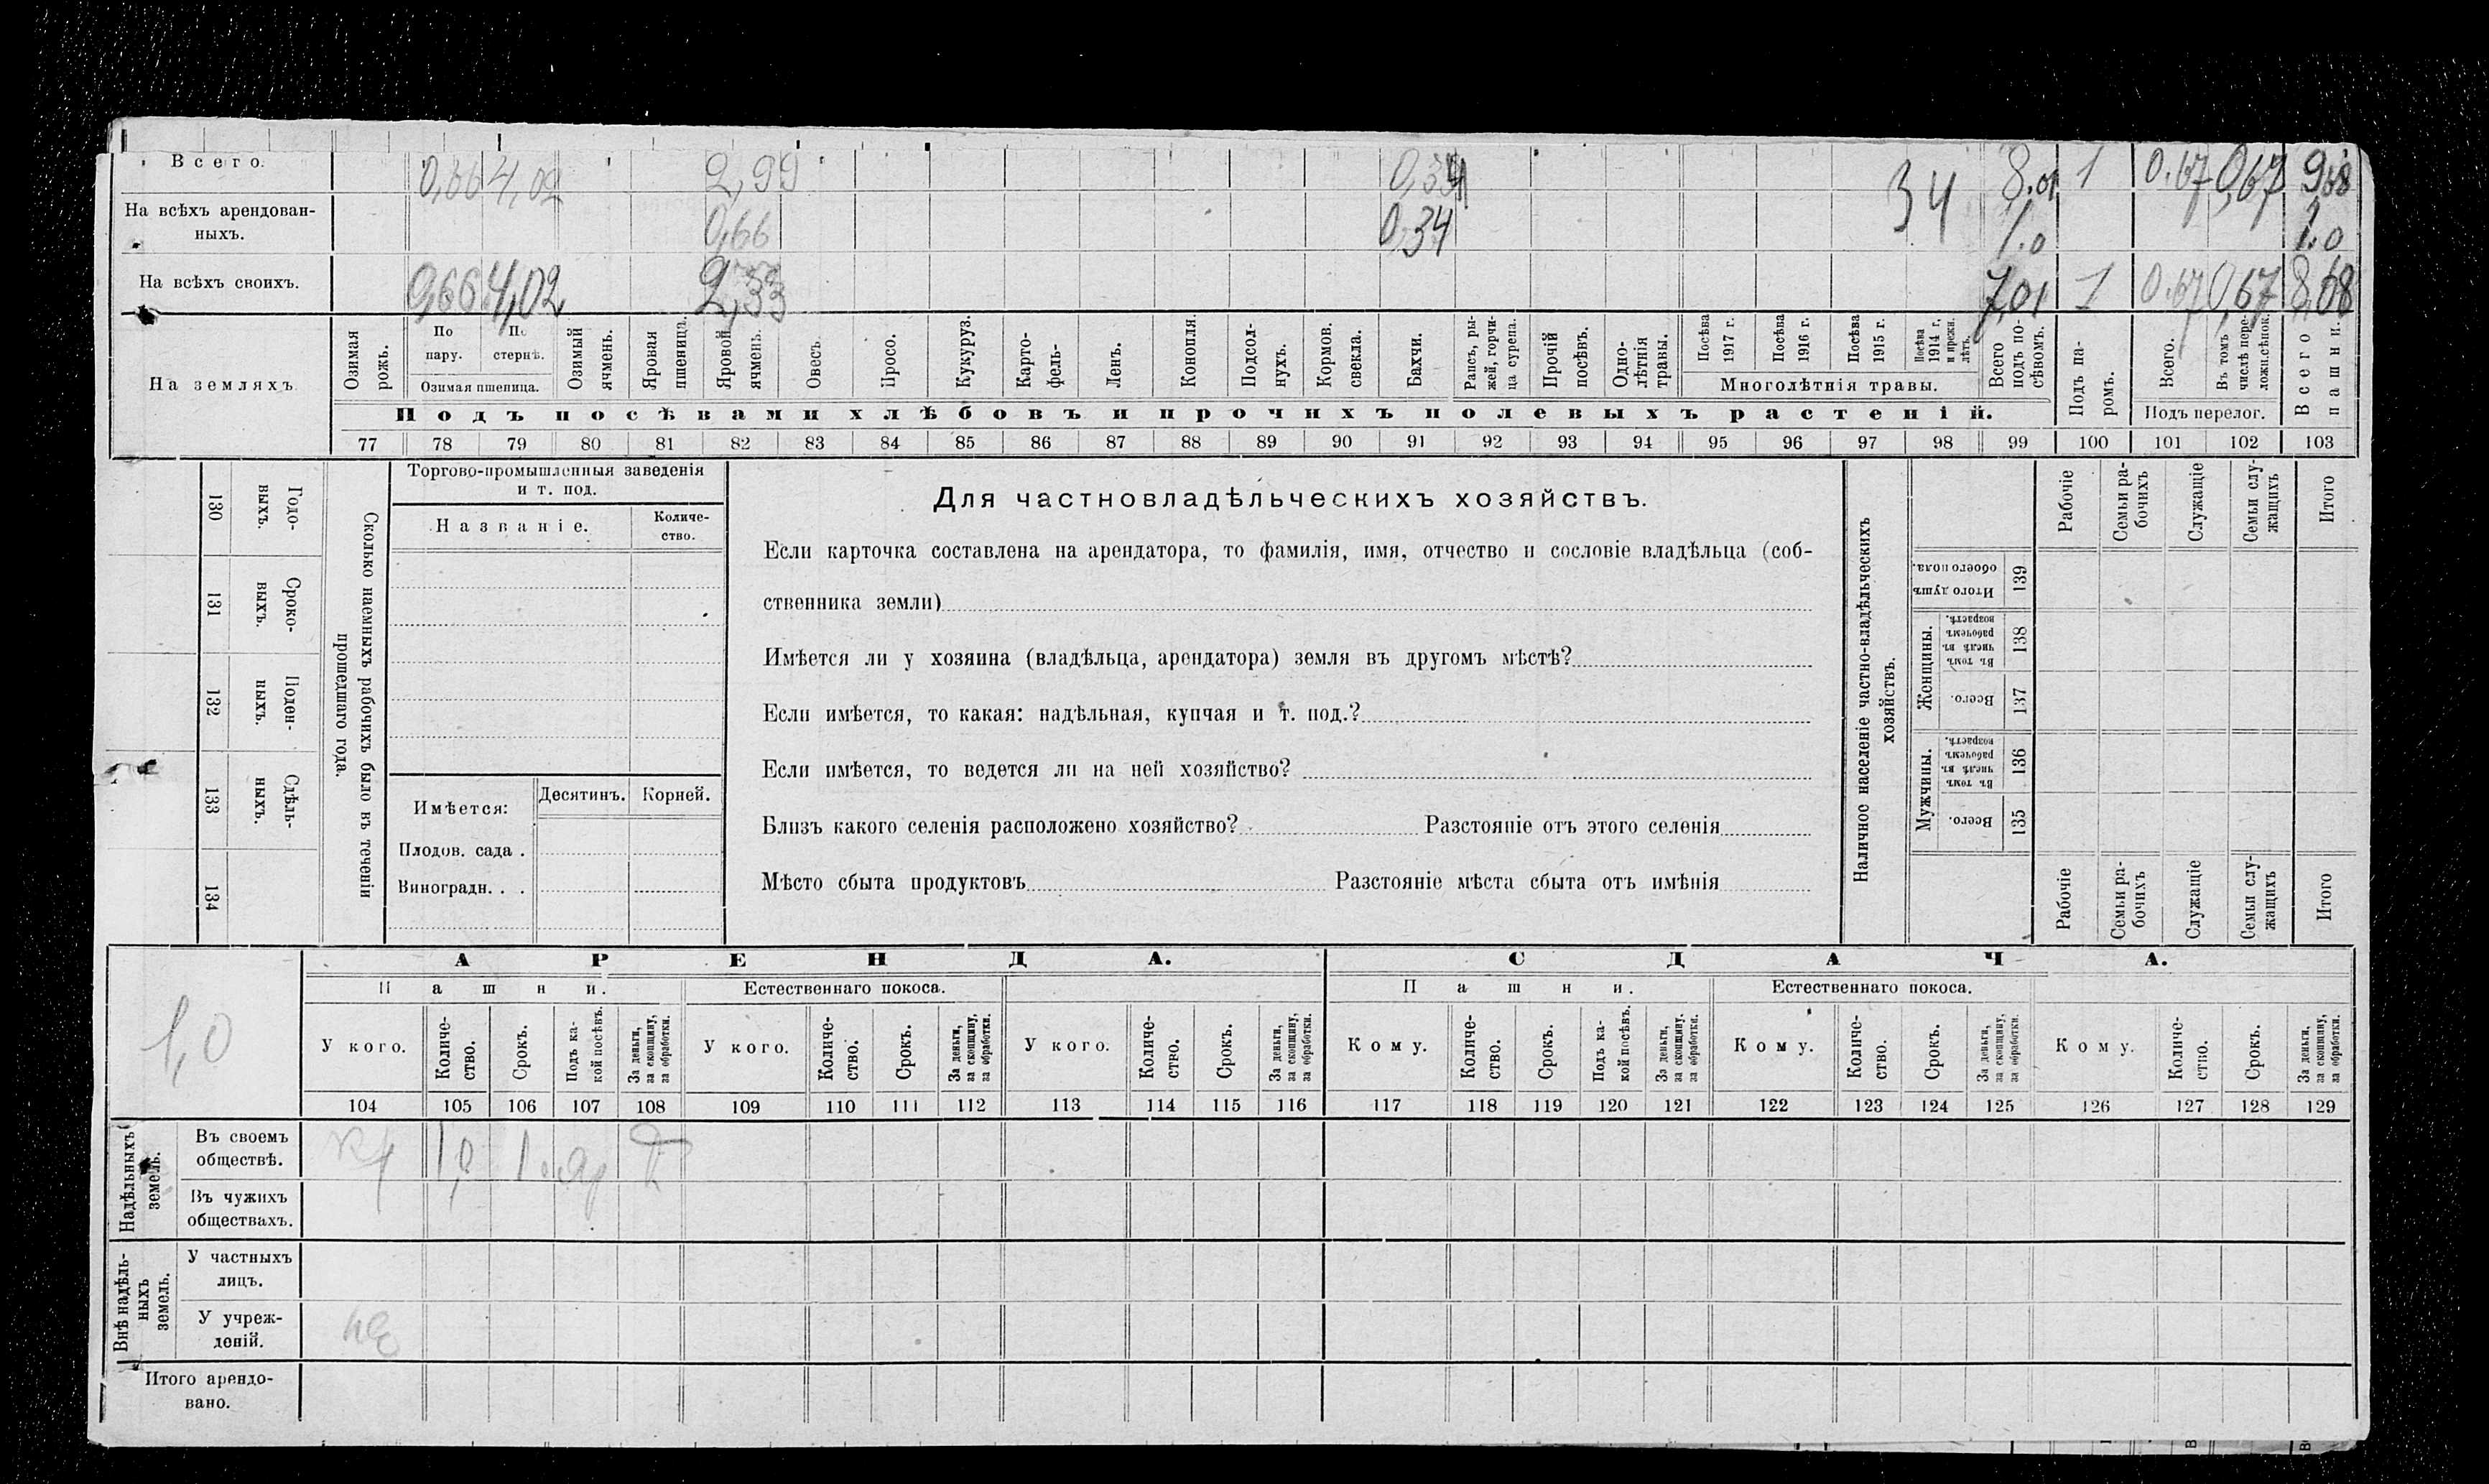 Всего. 0,66 4,02 2,99 0,34 8.01 1 0.67 0,67 9,68
На всѣхъ арендован-
ныхъ. 0,66 0,34 34 1.0 1.0
На всѣхъ своихъ. 0,66 4,02 2,33 7,01 1 0.67 0,67 8,68
На земляхъ
Озимая рожь.
По пару.
По стернѣ.
Озимая пшеница.
Озимый ячмень.
Яровая пшеница.
Яровой ячмень.
Овесъ.
Просо.
Кукуруз.
Карто-
фель-
Ленъ.
Конопля.
Подсол-
нухъ.
Кормов.
свекла.
Бахчи.
Рапсъ, ры-
жей, горчи-
ца сурепа.
Прочій
посѣвъ.
Одно-
лѣтнія
травы.
Посѣва
1917 г.
Посѣва
1916 г.
Посѣва
1915 г.
Посѣва
1914 г.
и прежн.
лѣтъ.
Многолѣтнія травы.
Всего
подъ по-
сѣвомъ.
Подъ па-
ромъ.
Всего.
Въ томъ
числѣ пере-
лож. сѣнок.
Подъ перелог.
Всего
пашни.
Подъ посѣвами хлѣбовъ и прочихъ полевыхъ растеній.
77 78 79 80 81 82 83 84 85 86 87 88 89 90 91 92 93 94 95 96 97 98 99 100 101 102 103
Сколько наемныхъ рабочихъ было въ теченіи
прошедшаго года.
Годо-
выхъ.
130
Сроко-
выхъ.
131
Поден-
ныхъ.
132
Сдѣль-
ныхъ.
133
134
Торгово-промышленныя заведенія
и т. под.
Названіе.
Количе-
ство.
Имѣется:
Десятинъ.
Корней.
Плодов. сада .
Виноградн. . .
Для частновладѣльческихъ хозяйствъ.
Если карточка составлена на арендатора, то фамилія, имя, отчество и сословіе владѣльца (соб-
ственника земли)
Имѣется ли у хозяина (владѣльца, арендатора) земля въ другомъ мѣстѣ?
Если имѣется, то какая: надѣльная, купчая и т. под.?
Если имѣется, то ведется ли на ней хозяйство?
Близъ какого селенія расположено хозяйство? Разстояніе отъ этого селенія
Мѣсто сбыта продуктовъ Разстояніе мѣста сбыта отъ имѣнія
Наличное населеніе частно-владѣльческихъ
хозяйствъ.
Рабочіе
Семьи ра-
бочихъ
Служащіе
Семьи слу-
жащихъ
Итого
Итого душъ
обоего пола.
139
Женщины.
Въ томъ
числѣ въ
рабочемъ
возрастѣ.
138
Всего.
137
Мужчины.
Въ томъ
числѣ въ
рабочемъ
возрастѣ.
136
Всего.
135
Рабочіе
Семьи ра-
бочихъ
Служащіе
Семьи слу-
жащихъ
Итого
1,0
АРЕНДА.
СДАЧА.
Пашни.
Естественнаго покоса.
Пашни.
Естественнаго покоса.
У кого.
Количе-
ство.
Срокъ.
Подъ ка-
кой посѣвъ.
За деньги,
за скопщину,
за обработки.
У кого.
Количе-
ство.
Срокъ.
За деньги,
за скопщину,
за обработки.
У кого.
Количе-
ство.
Срокъ.
За деньги,
за скопщину,
за обработки.
Кому.
Количе-
ство.
Срокъ.
Подъ ка-
кой посѣвъ.
За деньги,
за скопщину.
за обработки.
Кому.
Количе-
ство.
Срокъ.
За деньги,
за скопщину,
за обработки.
Кому.
Количе-
ство.
Срокъ.
За деньги,
за скопщину,
за обработки.
104 105 106 107 108 109 110 111 112 113 114 115 116 117 118 119 120 121 122 123 124 125 126 127 128 129
Надѣльныхъ
земель.
Въ своемъ
обществѣ. 1,0 1
Въ чужихъ
обществахъ.
Внѣ надѣль-
ныхъ
земель.
У частныхъ
лицъ.
У учреж-
деній.
Итого арендо-
вано.